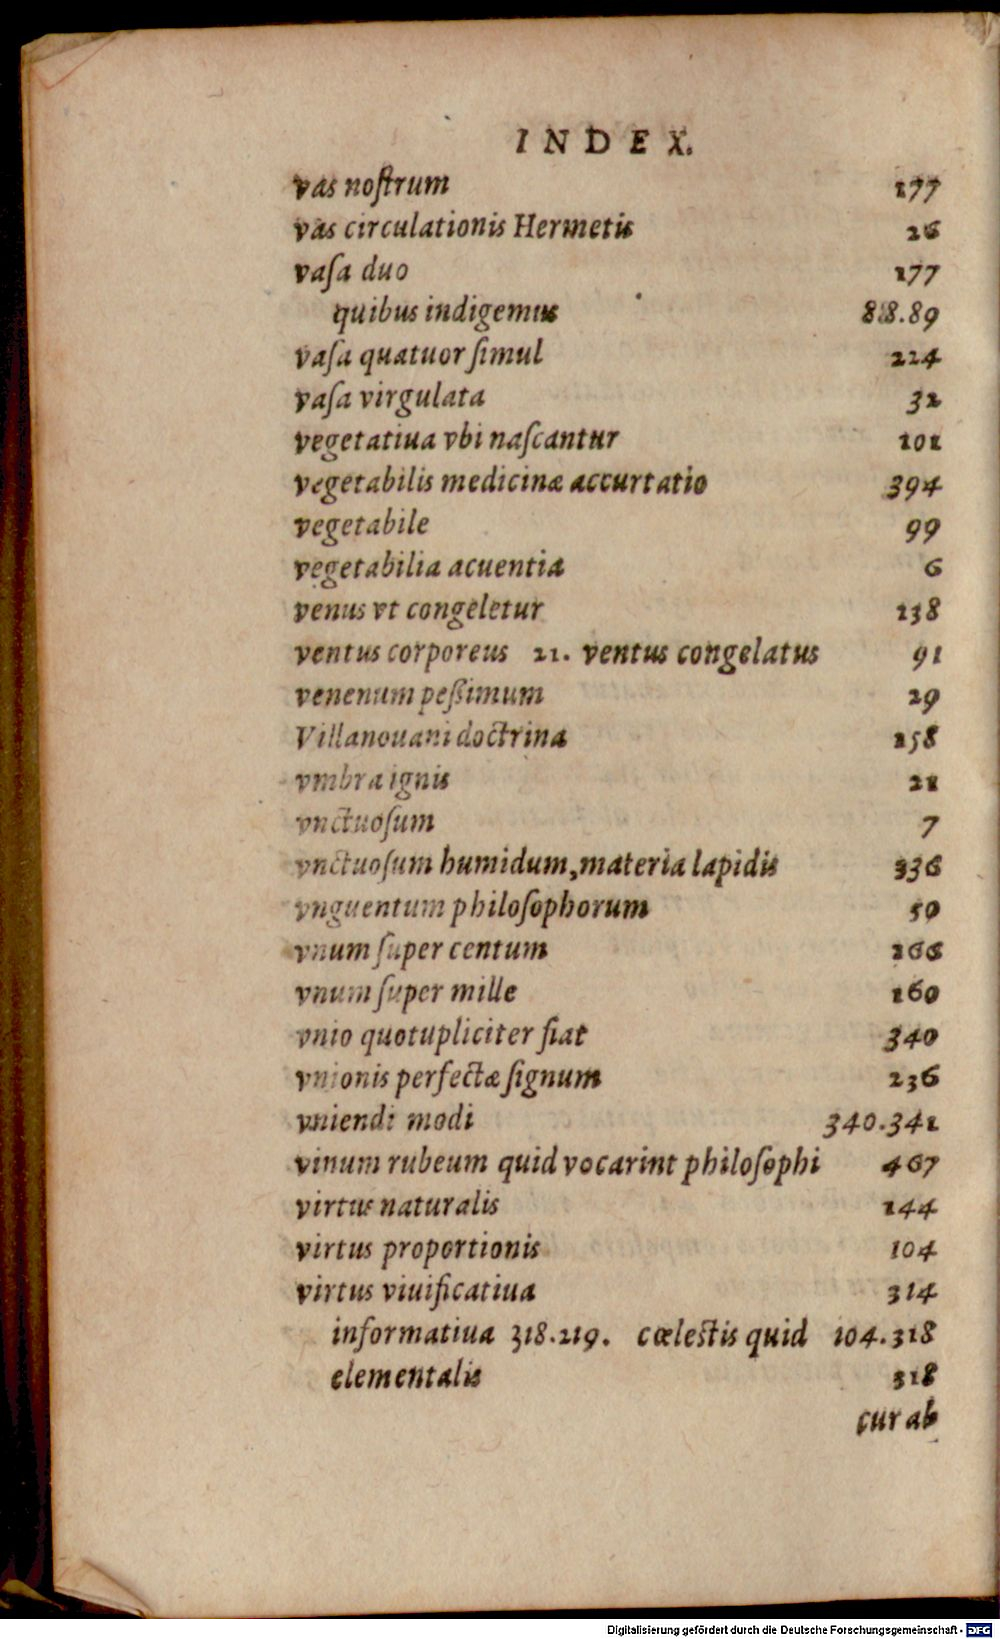 INDEX.
vas noſtrum 177
vas circulationis Hermetis 26
vaſa duo 177
quibus indigemus 88.89
vaſa quatuor ſimul 224
vaſa virgulata 32
vegetatiua vbi naſcantur 101
vegetabilis medicinæ accurtatio 394
vegetabile 99
vegetabilia acuentia 6
venus vt congeletur 138
ventus corporeus 21. ventus congelatus 91
venenum peſsimum 29
Villanouani doctrina 158
vmbra ignis 21
vnctuoſum 7
vnctuoſum humidum, materia lapidis 336
vnguentum philoſophorum 50
vnum ſuper centum 166
vnum ſuper mille 160
vnio quotupliciter fiat 340
vnionis perfectæ ſignum 236
vniendi modi 340.341
vinum rubeum quid vocarint philoſophi 467
virtus naturalis 144
virtus proportionis 104
virtus viuificatiua 314
informatiua 318.219. cœleſtis quid 104.318
elementalis 318
cur ab
Digitalisierung gefördert durch die Deutsche Forschungsgemeinschaft - DFG